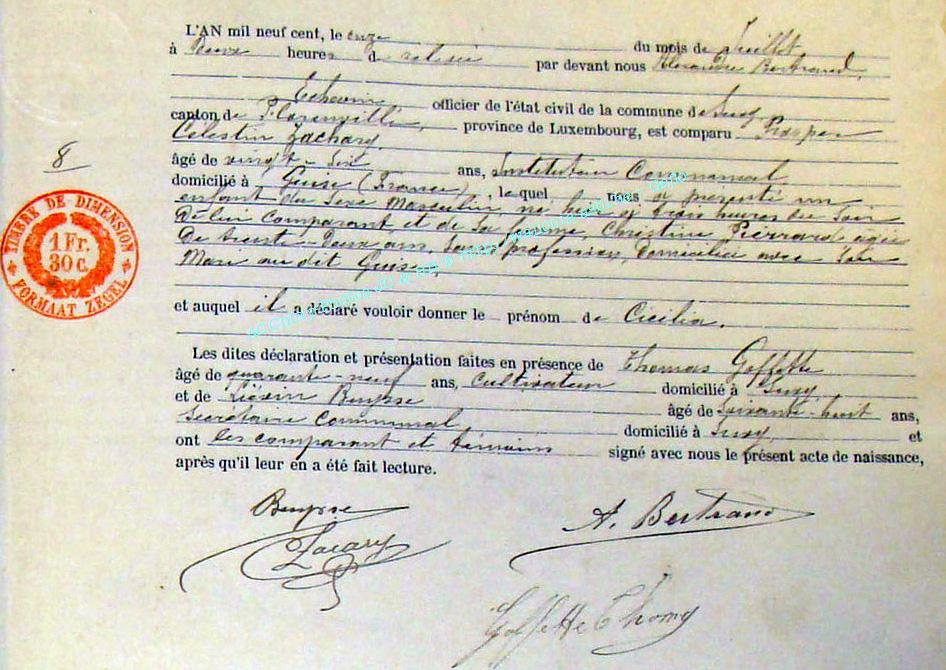 L'AN mil neuf cent, le onze du mois de Juillet
à Deux heures d de relevée par devant nous Alexandre Bertrand,
Echevin officier de l'état civil de la commune de Suxy
canton de Florenville, province de Luxembourg, est comparu Prosper
Célestin Zachary,
8
âgé de vingt-six ans, Instituteur Communal,
domicilié à Guise (France), lequel nous a présenté un
enfant du Sexe Masculin, né hier à trois heures du Soir
De lui comparant, et de Sa femme, Christine Pierrard agée
De trente-Deux ans, Sans profession, Domiciliée avec Son
Mari au dit Guise,
TIMBRE DE DIMENSION
1 Fr.
30 c.
FORMAAT ZEGEL
et auquel il a déclaré vouloir donner le prénom de Cicilia.
Les dites déclaration et présentation faites en présence de Thomas Goffette
âgé de quarante-neuf ans, Cultivateur domicilié à Suxy
et de Liévin Buysse âgé de Soixante-huit ans,
Secrétaire Communal domicilié à Suxy, et
ont les comparant et témoins signé avec nous le présent acte de naissance,
après qu'il leur en a été fait lecture.
Buysse
A. Bertrand
Zacary
Goffette Thomy